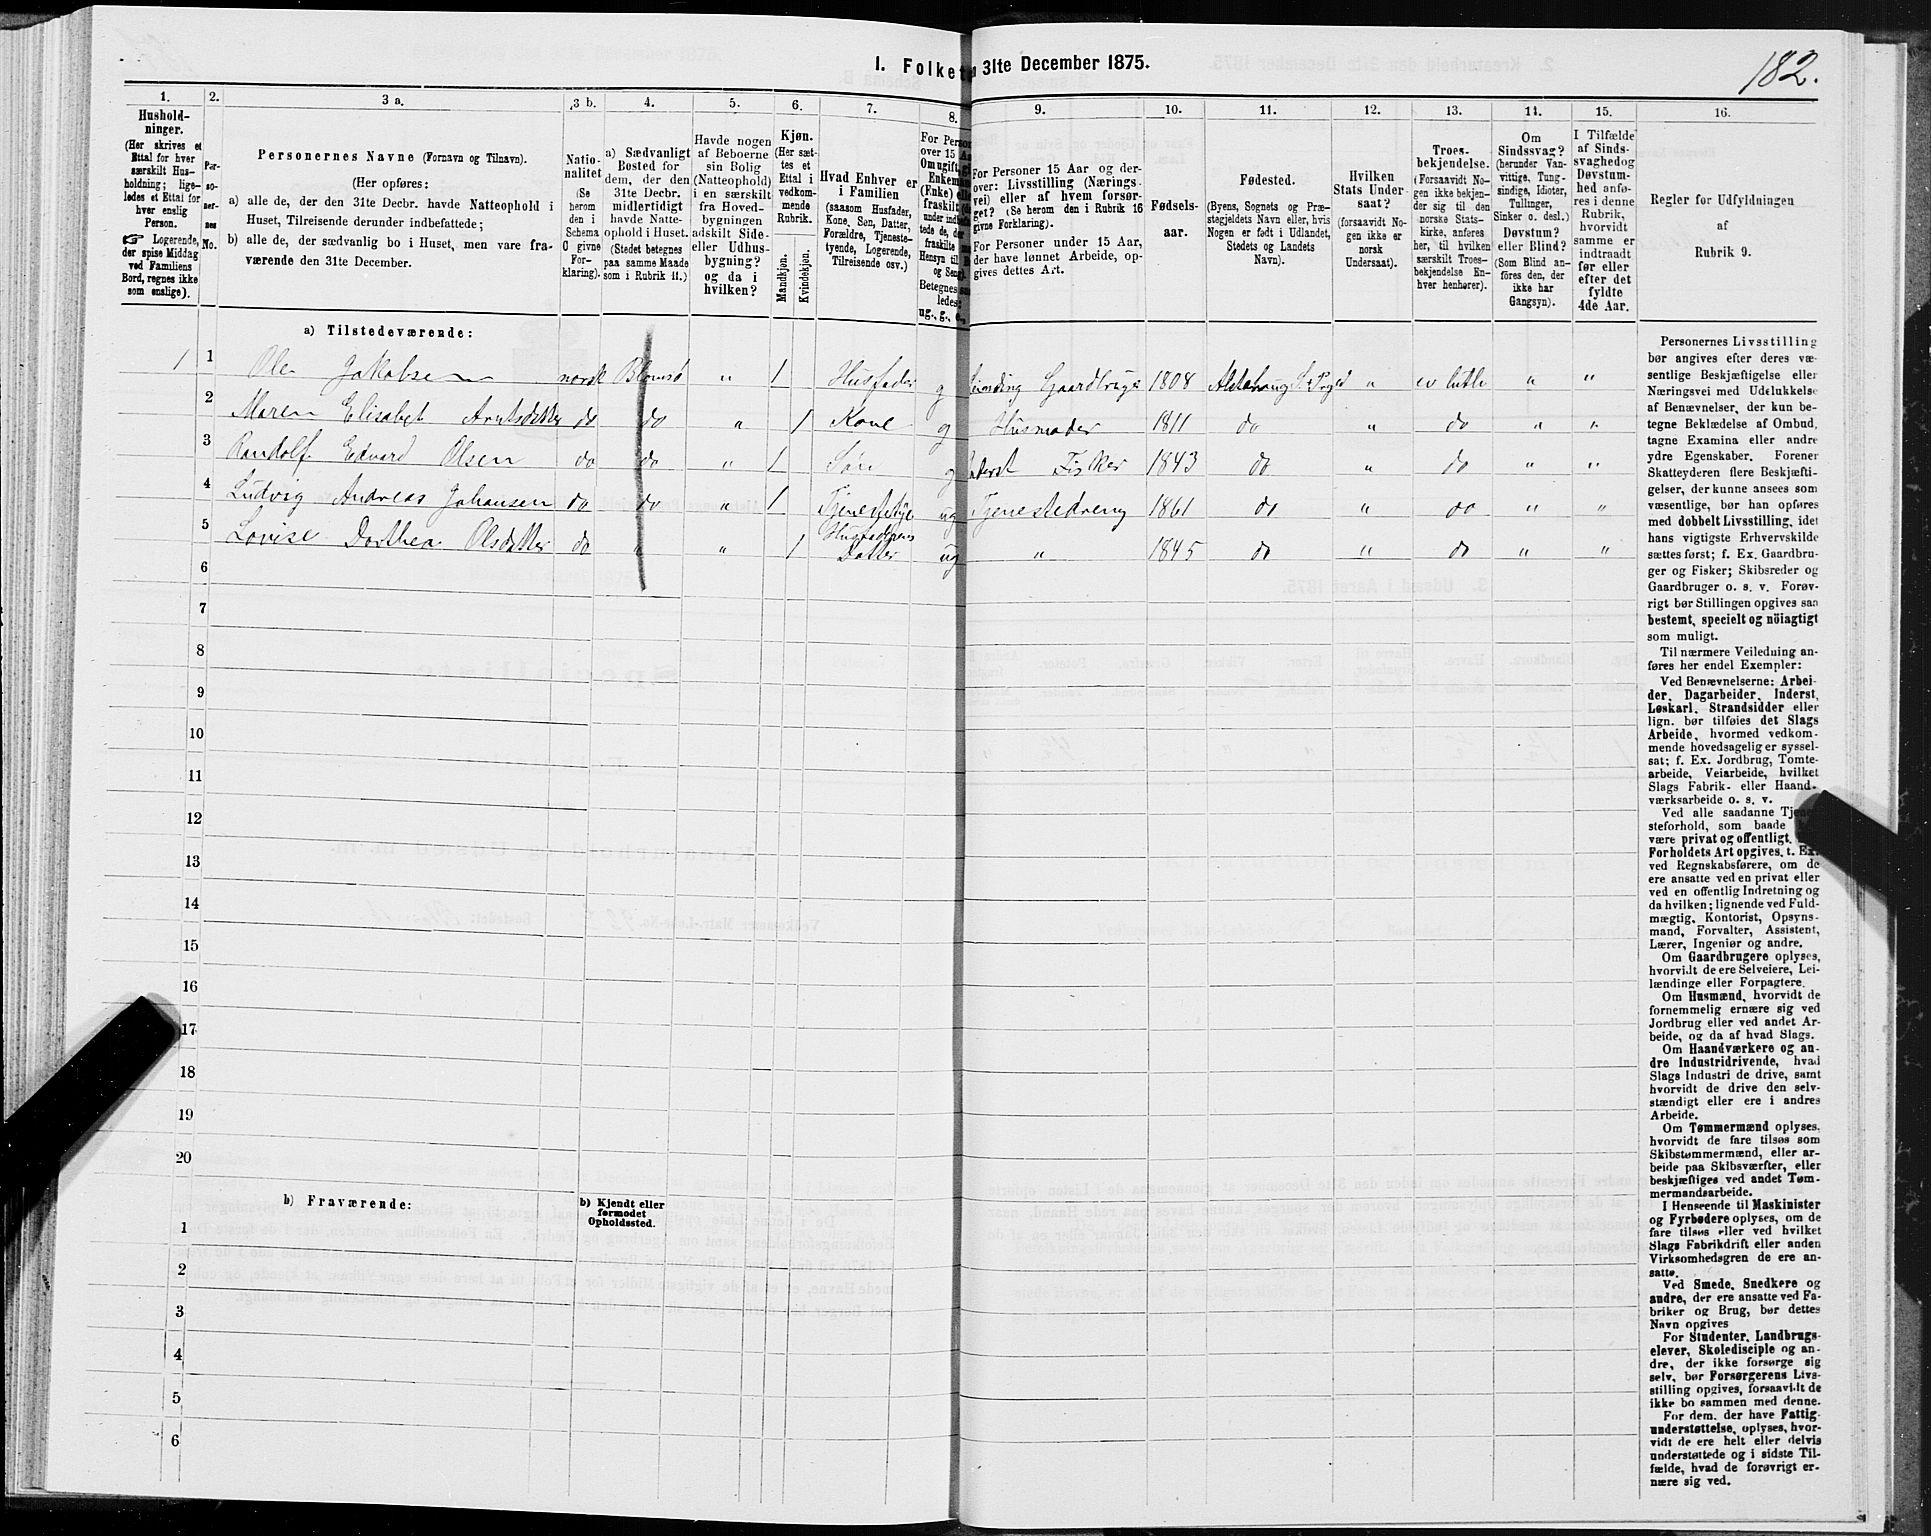 182.
I. Folket 31te December 1875.
1.
Hushold-
ninger.
(Her skrives et
Ettal for hver
særskilt Hus-
holdning; lige-
ledes et Ettal for
hver enslig
Person.
☞ Logerende,
der spise Middag
ved Familiens
Bord, regnes ikke
som enslige).
2.
Per-
so-
ner-
nes
No.
3 a.
Personernes Navne (Fornavn og Tilnavn).
(Her opføres:
a) alle de, der den 31te Decbr. havde Natteophold i
Huset, Tilreisende derunder indbefattede;
b) alle de, der sædvanlig bo i Huset, men vare fra-
værende den 31te December.
3 b.
Natio-
nalitet
(Se
herom
den i
Schema
C givne
For-
klaring).
4.
a) Sædvanligt
Bosted for
dem, der den
31te Decbr.
midlertidigt
havde Natte-
ophold i Huset.
(Stedet betegnes
paa samme Maade
som i Rubrik 11.)
5.
Havde nogen
af Beboerne
sin Bolig
(Natteophold)
i en særskilt
fra Hoved-
bygningen
adskilt Side-
eller Udhus-
bygning?
og da i
hvilken?
6.
Kjøn.
(Her sæt-
tes et
Ettal i
vedkom-
mende
Rubrik.
Mandkjøn.
Kvindekjøn.
7.
Hvad Enhver er
i Familien
(saasom Husfader,
Kone, Søn, Datter,
Forældre, Tjeneste-
tyende, Logerende,
Tilreisende osv.)
8.
For Person
over 15 Aa
Om ugift, gi
Enkeman
(Enke) elle
fraskilt
under indbe
tede de, der
fraskilte m
Hensyn til B
og Seng).
Betegnes saa
ledes:
ug., g., e.,
9.
For Personer 15 Aar og der-
over: Livsstilling (Nærings-
vei) eller af hvem forsør-
get? (Se herom den i Rubrik 16
givne Forklaring).
For Personer under 15 Aar,
der have lønnet Arbeide, op-
gives dettes Art.
10.
Fødsels-
aar.
11.
Fødested.
(Byens, Sognets og Præ-
stegjeldets Navn eller, hvis
Nogen er født i Udlandet,
Stedets og Landets
Navn).
12.
Hvilken
Stats Under-
saat?
(forsaavidt No-
gen ikke er
norsk
Undersaat).
13.
Troes-
bekjendelse.
(Forsaavidt No-
gen ikke bekjen-
der sig til den
norske Stats-
kirke, anføres
her, til hvilken
særskilt Troes-
bekjendelse En-
hver henhører).
14.
Om
Sindssvag?
(herunder Van-
vittige, Tung-
sindige, Idioter,
Tullinger,
Sinker o. desl.)
Døvstum?
eller Blind?
(Som Blind an-
føres den, der
ikke har
Gangsyn).
15.
I Tilfælde
af Sinds-
svaghed og
Døvstum-
hed anfø-
res i denne
Rubrik,
hvorvidt
samme er
indtraadt
før eller
efter det
fyldte
4de Aar.
16.
Regler for Udfyldningen
af
Rubrik 9.
a) Tilstedeværende:
1 1 Ole Jakobsen norsk Blomsø " 1 Husfader g Gaardbruger 1808 Alstahaug S. Prgd " ev luth " "
2 Maren Elisabet Arntsdatter do do " 1 Kone g Husmoder 1811 do " do " "
3 Randolf Edvard Olsen do do " 1 Søn Inderst Fisker 1843 do " do " "
4 Ludvig Andreas Johansen do do " 1 ug Tjenestedreng 1861 do " do " "
5 Lovise Dorthea Olsdatter do " " 1 Husfaderens Datter ug " 1845 do " do " "
6
7
8
9
10
11
12
13
14
15
16
17
18
19
20
b) Fraværende:
b) Kjendt eller
formodet
Opholdssted.
1
2
3
4
5
6
Personernes Livsstilling
bør angives efter deres væ-
sentlige Beskjæftigelse eller
Næringsvei med Udelukkelse
af Benævnelser, der kun be-
tegne Beklædelse af Ombud,
tagne Examina eller andre
ydre Egenskaber. Forener
Skatteyderen flere Beskjæfti-
gelser, der kunne ansees som
væsentlige, bør han opføres
med dobbelt Livsstilling, idet
hans vigtigste Erhvervskilde
sættes først; f. Ex. Gaardbru-
ger og Fisker; Skibsreder og
Gaardbruger o. s. v. Forøv-
rigt bør Stillingen opgives saa
bestemt, specielt og nöiagtigt
som muligt.
Til nærmere Veiledning an-
føres her endel Exempler:
Ved Benævnelserne: Arbei-
der, Dagarbeider, Inderst,
Løskarl, Strandsidder eller
lign. bør tilføies det Slags
Arbeide, hvormed vedkom-
mende hovedsagelig er syssel-
sat; f. Ex. Jordbrug, Tomte-
arbeide, Veiarbeide, hvilket
Slags Fabrik- eller Haand-
værksarbeide o. s. v.
Ved alle saadanne Tjene-
steforhold, som baade
være privat og offentligt,
Forholdets Art opgives, t. Ex.
ved Regnskabsførere, om de
ere ansatte ved en privat eller
ved en offentlig Indretning og
da hvilken; lignende ved Fuld-
mægtig, Kontorist, Opsyns-
mand, Forvalter, Assistent,
Lærer, Ingeniør og andre.
Om Gaardbrugere oplyses,
hvorvidt de ere Selveiere, Lei-
lændinge eller Forpagtere.
Om Husmænd, hvorvidt de
fornemmelig ernære sig ved
Jordbrug eller ved andet Ar-
beide, og da af hvad Slags.
Om Haandværkere og an-
dre Industridrivende, hvad
Slags Industri de drive, samt
hvorvidt de drive den selv-
stændigt eller ere i andres
Arbeide.
Om Tømmermænd oplyses,
hvorvidt de fare tilsøs som
Skibstømmermænd, eller ar-
beide paa Skibsværfter, eller
beskjæftiges ved andet Tøm-
mermandsarbeide.
I Henseende til Maskinister
og Fyrbødere oplyses, om de
fare tilsøs eller ved hvilket
Slags Fabrikdrift eller anden
Virksomhedsgren de ere an-
satte.
Ved Smede, Snedkere og
andre, der ere ansatte ved Fa-
briker og Brug, bør dettes
Navn opgives
For Studenter, Landbrugs-
elever, Skoledisciple og an-
dre, der ikke forsørge sig
selv, bør Forsørgerens Livs-
stilling opgives, forsaavidt de
ikke bo sammen med denne.
For dem, der have Fattig-
understøttelse, oplyses, hvor-
vidt de ere helt eller delvis
understøttede og i sidste Til-
fælde, hvad de forøvrigt er-
nære sig ved.